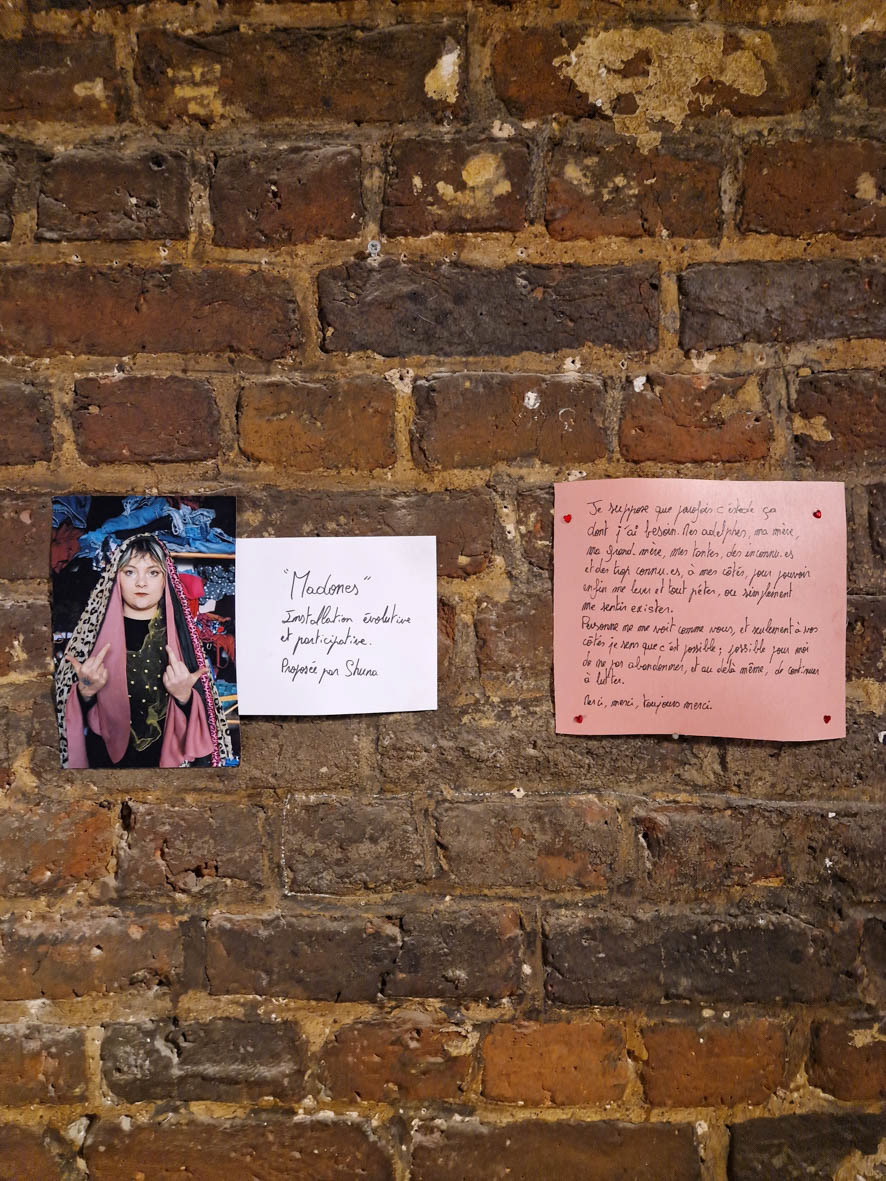 "Madones"
Installation évolutive
et participative.
Proposée par Shuna
Je suppose que parfois c'est de ça
dont j'ai besoin. Mes adelphes, ma mère,
ma grand-mère, mes tantes, des inconnu.es
et de trop connu.es, à mes côtés, pour pouvoir
enfin me lever et tout péter, ou simplement
me sentir exister.
Personne ne me voit comme vous, et seulement à vos
côtés je sens que c'est possible ; possible pour moi
de ne pas abandonner, et au delà même, de continuer
à lutter.
Merci, merci, toujours merci.